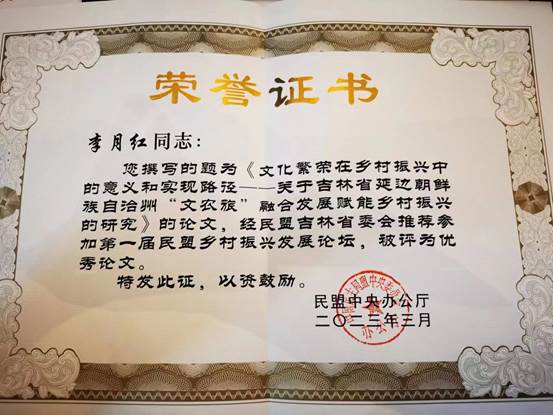 荣誉证书
李月红同志：
您撰写的题为《文化繁荣在乡村振兴中
的意义和实现路径——关于吉林省延边朝鲜
族自治州“文农旅”融合发展赋能乡村振兴
的研究》的论文，经民盟吉林省委会推荐参
加第一届民盟乡村振兴发展论坛，被评为优
秀论文。
特发此证，以资鼓励。
民盟中央办公厅
二〇二三年三月